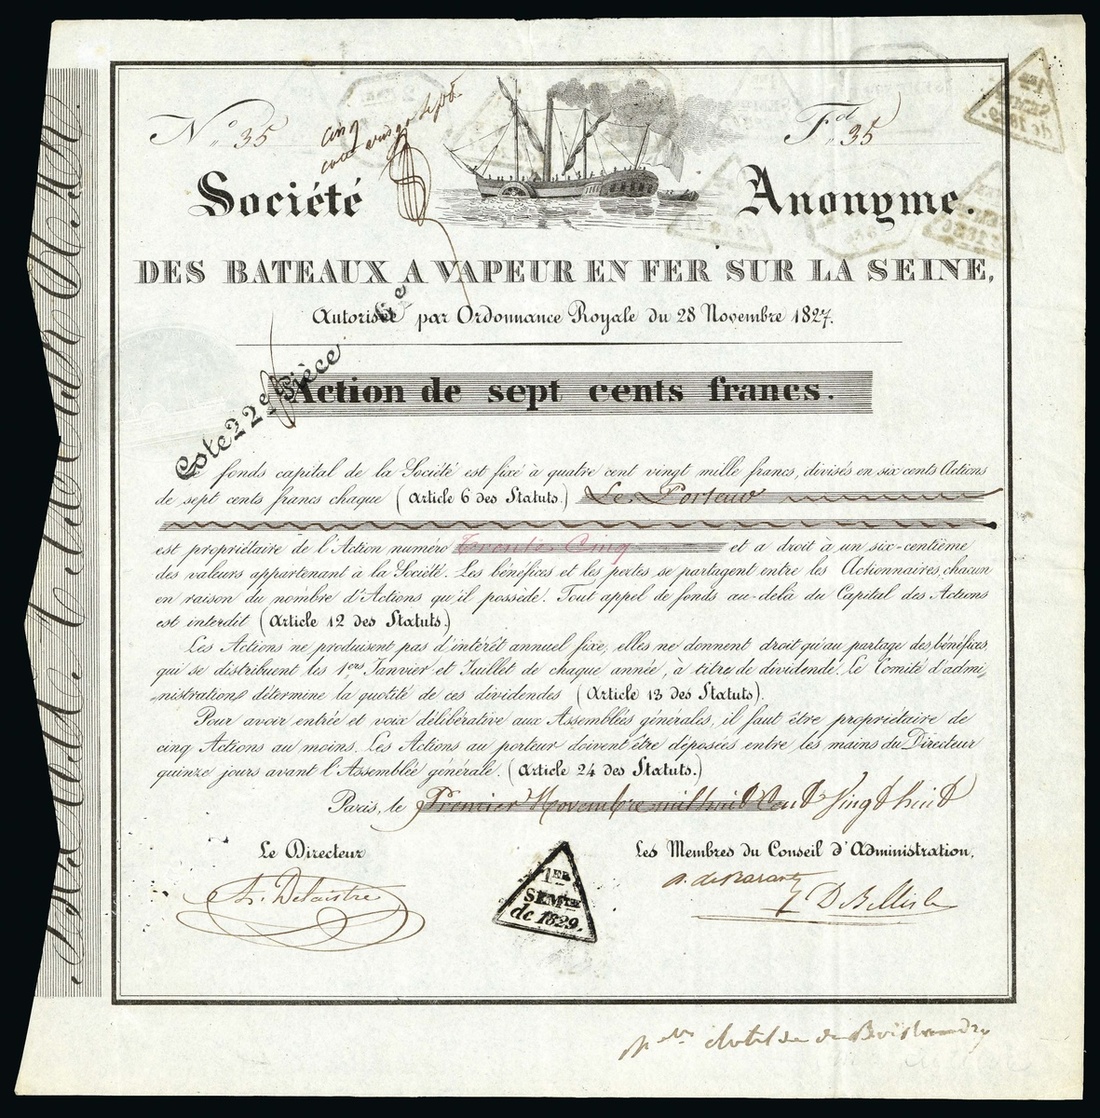 N.º 35
cinq
F.d 35
Société Anonyme.
DES BATEAUX A VAPEUR EN FER SUR LA SEINE,
Autorisée par Ordonnance Royale du 28 Novembre 1827.
Cote 22e Pièce
Action de sept cents francs.
fonds capital de la Société est fixé à quatre cent vingt mille francs, divisés en six cents Actions
de sept cents francs chaque (Article 6 des Statuts.) Le Porteur
est propriétaire de l'Action numéro Trente Cinq et a droit à un six-centième
des valeurs appartenant à la Société. Les bénéfices et les pertes se partagent entre les Actionnaires, chacun
en raison du nombre d'Actions qu'il possède. Tout appel de fonds au-delà du Capital des Actions
est interdit (Article 12 des Statuts.)
Les Actions ne produisent pas d'intérêt annuel fixe, elles ne donnent droit qu'au partage des bénéfices,
qui se distribuent les 1ers Janvier et Juillet de chaque année, à titre de dividende. Le Comité d'admi-
nistration détermine la quotité de ces dividendes (Article 13 des Statuts).
Pour avoir entrée et voix délibérative aux Assemblées générales, il faut être propriétaire de
cinq Actions au moins. Les Actions au porteur doivent être déposées entre les mains du Directeur
quinze jours avant l'Assemblée générale. (Article 24 des Statuts.)
Paris, le Premier Novembre mil huit Cent Vingt huit
Le Directeur
Les Membres du Conseil d'Administration,
1ER
SEMtre
de 1829.